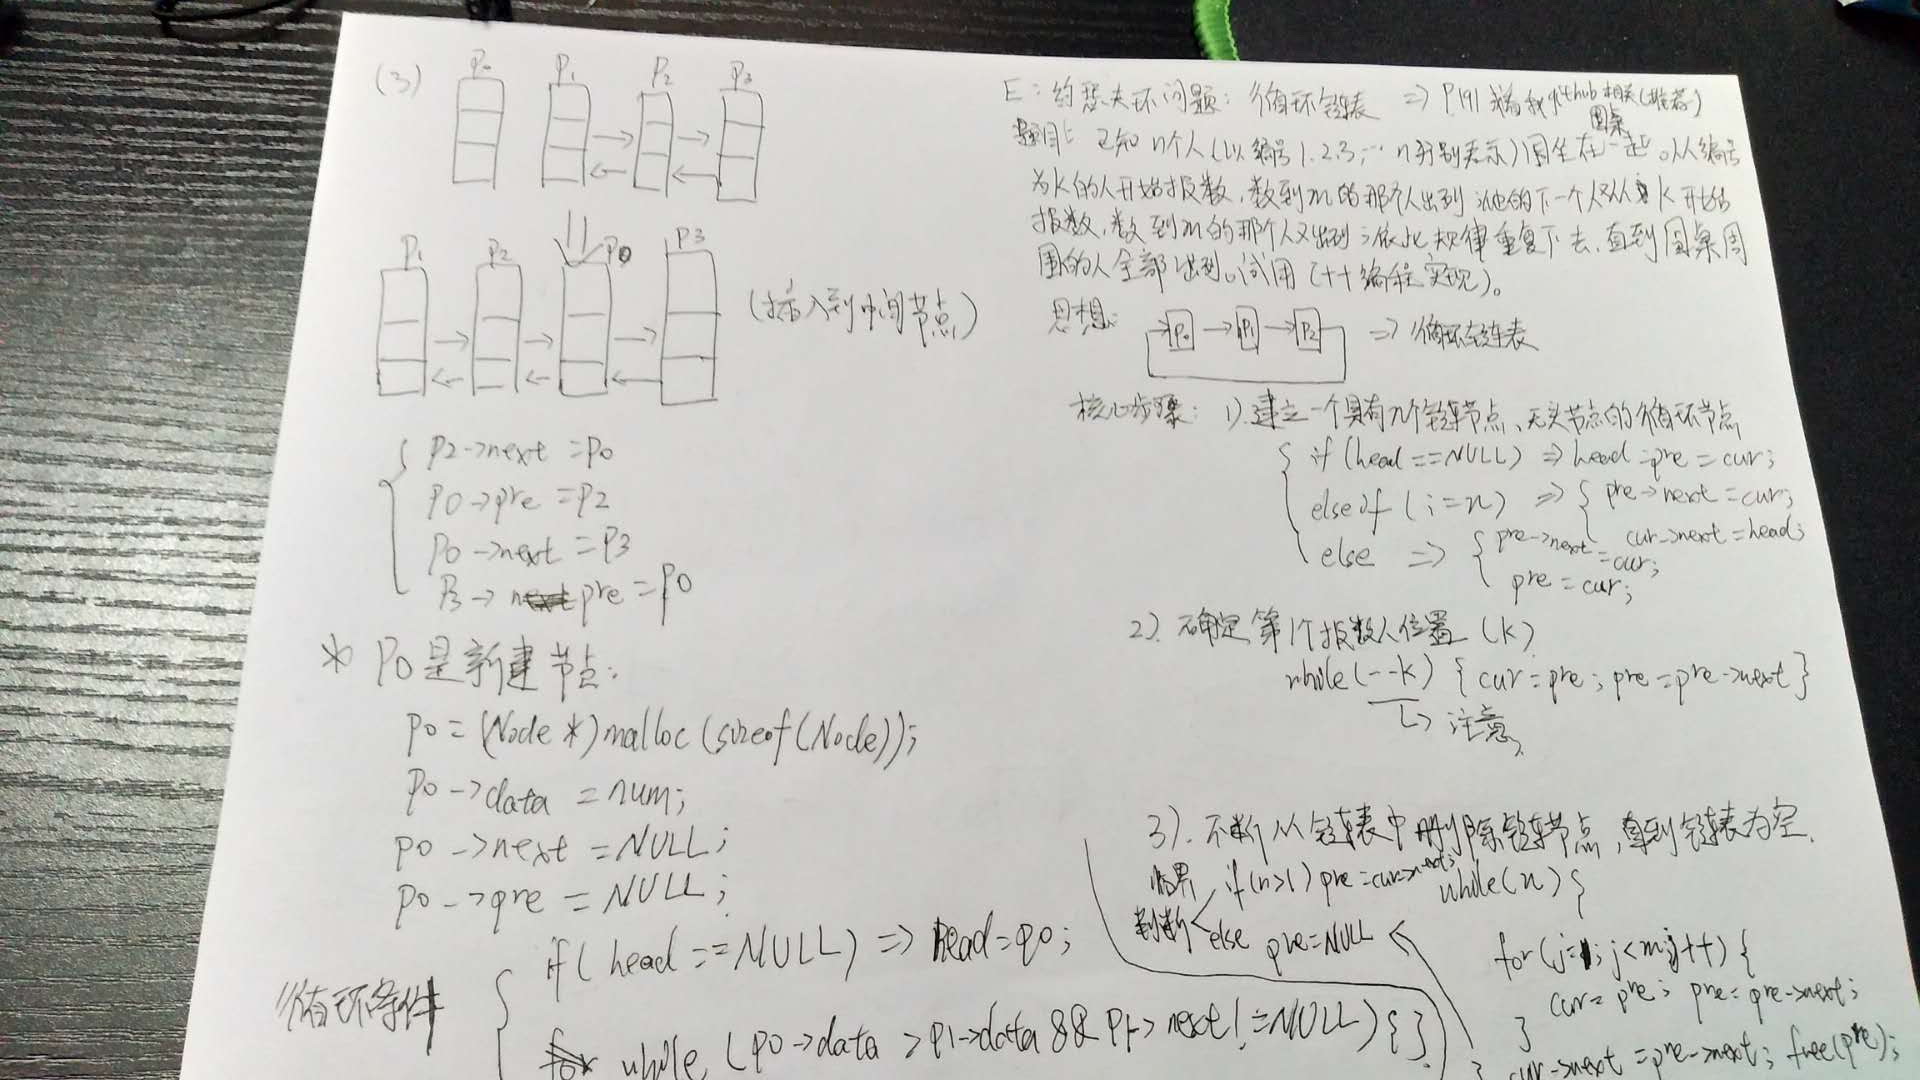 (3) P0 P1 P2 P3
P1 P2 P0 P3
(插入到中间节点)
P2->next =P0
P0->pre =P2
P0->next =P3
P3-> pre =P0
* P0是新建节点:
P0 = (Node *)malloc(sizeof(Node));
P0->data =num;
P0->next =NULL;
P0->pre =NULL;
循环条件
if( head ==NULL) => head=p0;
while (P0->data >P1->data && P1->next!=NULL){}
E: 约瑟夫环问题: 循环链表 => P191 github相关(推荐)
题目: 已知n个人(以编号1.2.3,…n分别表示)围坐在一起。从编号
圆桌
为K的人开始报数,数到m的那个人出列;他的下一个人又从K开始
报数,数到m的那个人又出列;依此规律重复下去,直到圆桌周
围的人全部出列。试用C++编程实现)。
思想: P0 -> P1 -> P2 => 循环链表
核心步骤: 1).建立一个具有n个链节点、无头节点的循环节点
if(head ==NULL) => head =pre = cur;
else if (i=n) => { pre->next =cur;
cur->next =head;
else => { pre->next =cur;
pre =cur;
2). 确定第1个报数人位置(K)
while(--k) { cur=pre; pre=pre->next }
注意
3). 不断从链表中删除链节点,直到链表为空.
临界判断
if(n>1) pre=cur->next;
else pre=NULL
while(n){
for(j=1; j<m;j++){
cur= pre; pre= pre->next;
}
cur->next =pre->next; free(pre);